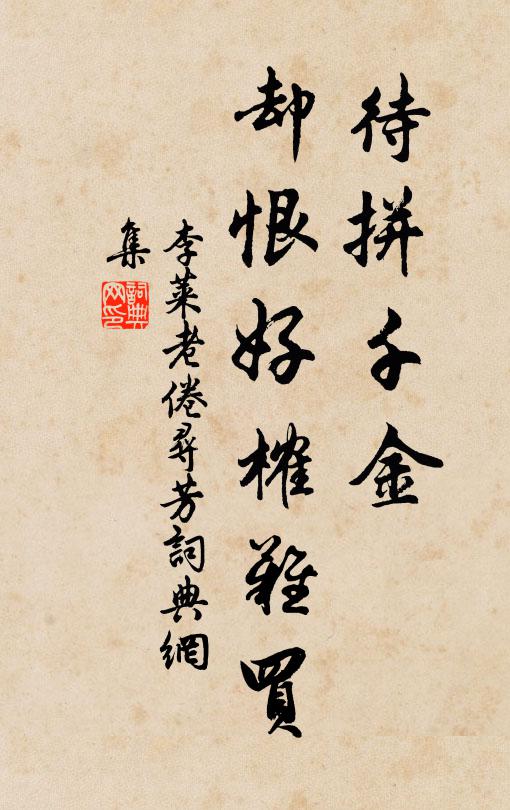 待拼千金
却恨好權難買
李萊老倦尋芳詞典網
集
詞典
网印